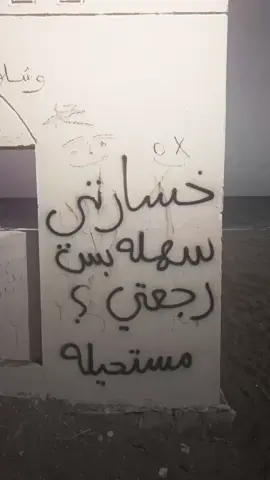 وشاد
o x
خسارتي
سهله بس
رجعتي ؟
مستحيله